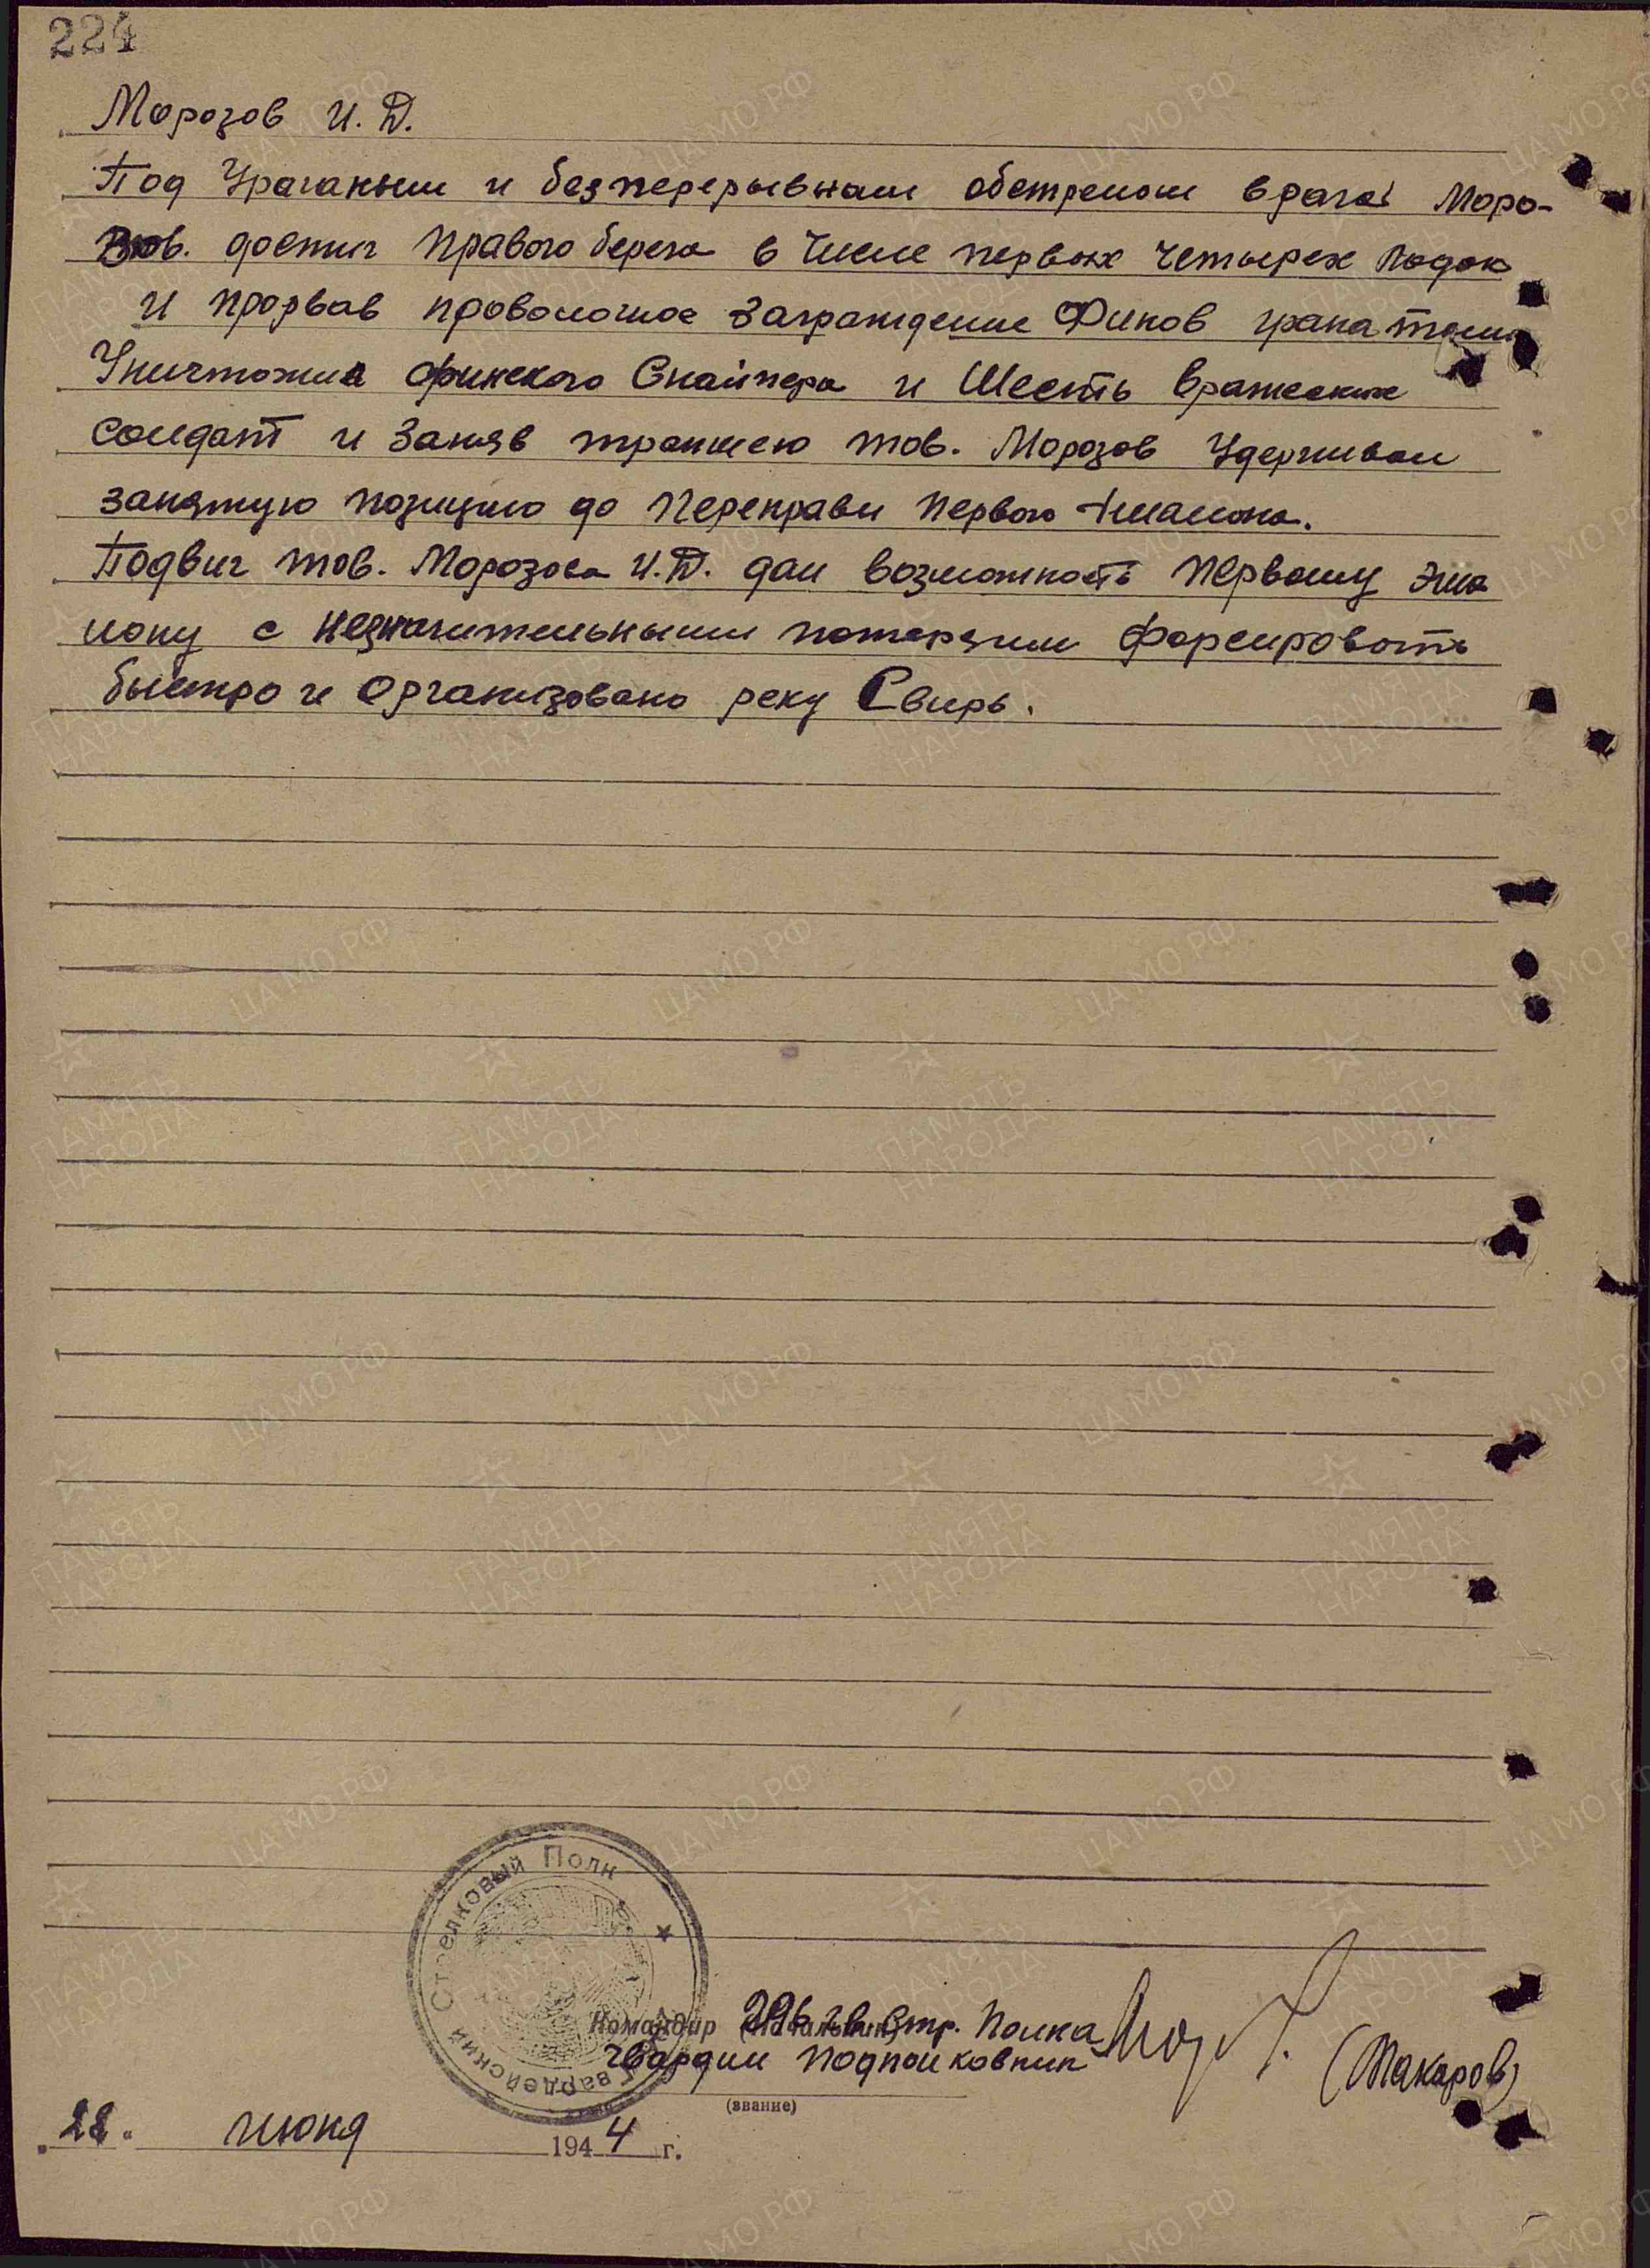 224
Морозов И.Д.
Под Ураганым и безперерывным обстрелом врага Моро-
зов. достиг Правого берега в Числе первых Четырех Лодок
и прорвав проволочное Заграждение Финов гранатами
Уничтожил финского Снайпера и Шесть вражеских
солдат и Заняв траншею тов. Морозов Удерживал
занятую позицию до Переправы Первого эшалона.
Подвиг тов. Морозова И.Д. дал возможность Первому эша
лону с незначительными потерями форсировать
быстро и организовано реку Свирь.
Гвардейский Стрелковый Полк
Командир 296 гв. Стр. Полка
(Начальник)
Гвардии Подполковник (Макаров)
(звание)
"28" июня 1944 г.
ЦА МО РФ
ПАМЯТЬ НАРОДА